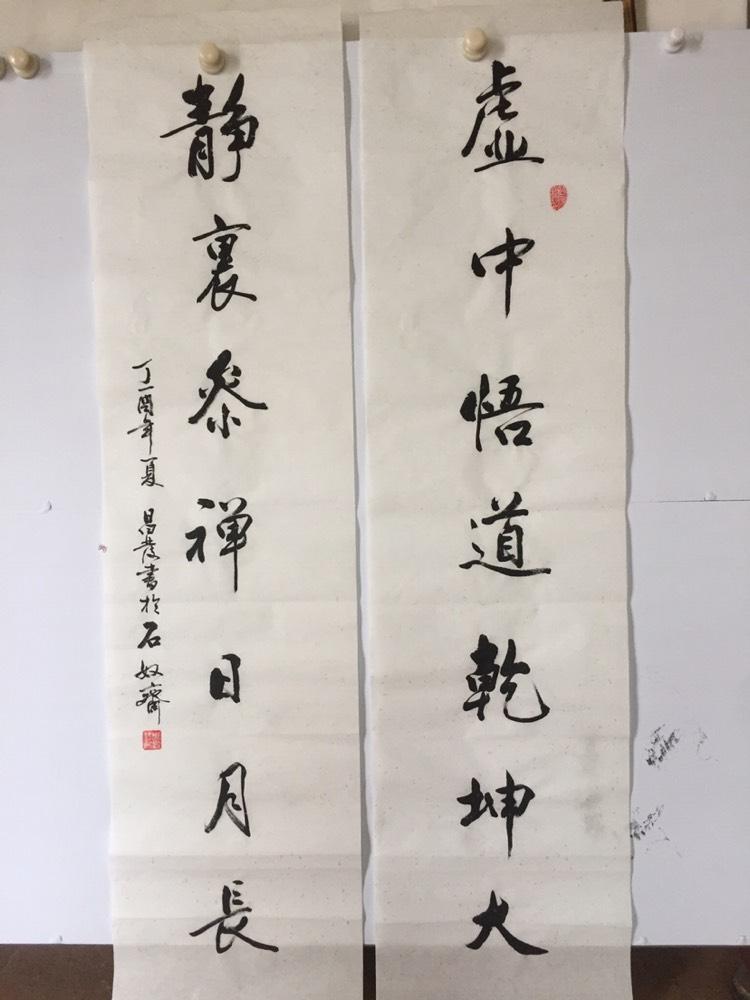 虚中悟道乾坤大
静裏参禅日月長
丁酉年夏 昌茂書於石奴齋